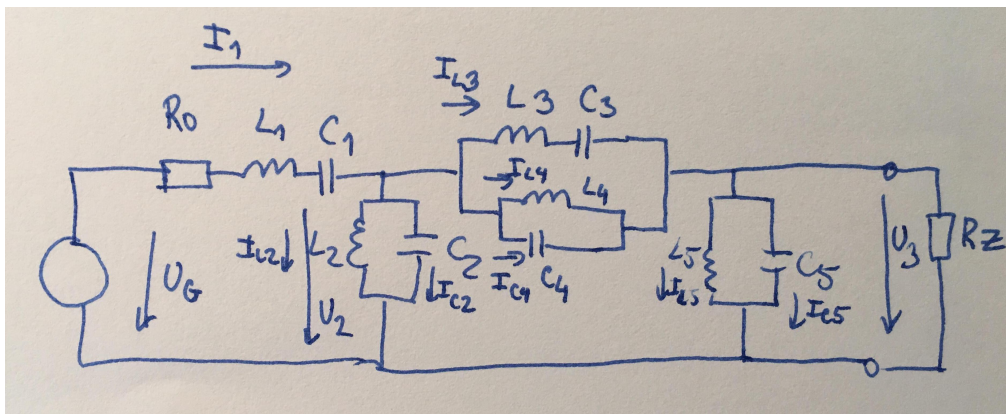 I1
IL3
R0
L1
C1
L3
C3
IL4
L4
UG
IL2
L2
C2
IC2
U2
IC4
C4
L5
IL5
C5
IC5
U3
RZ